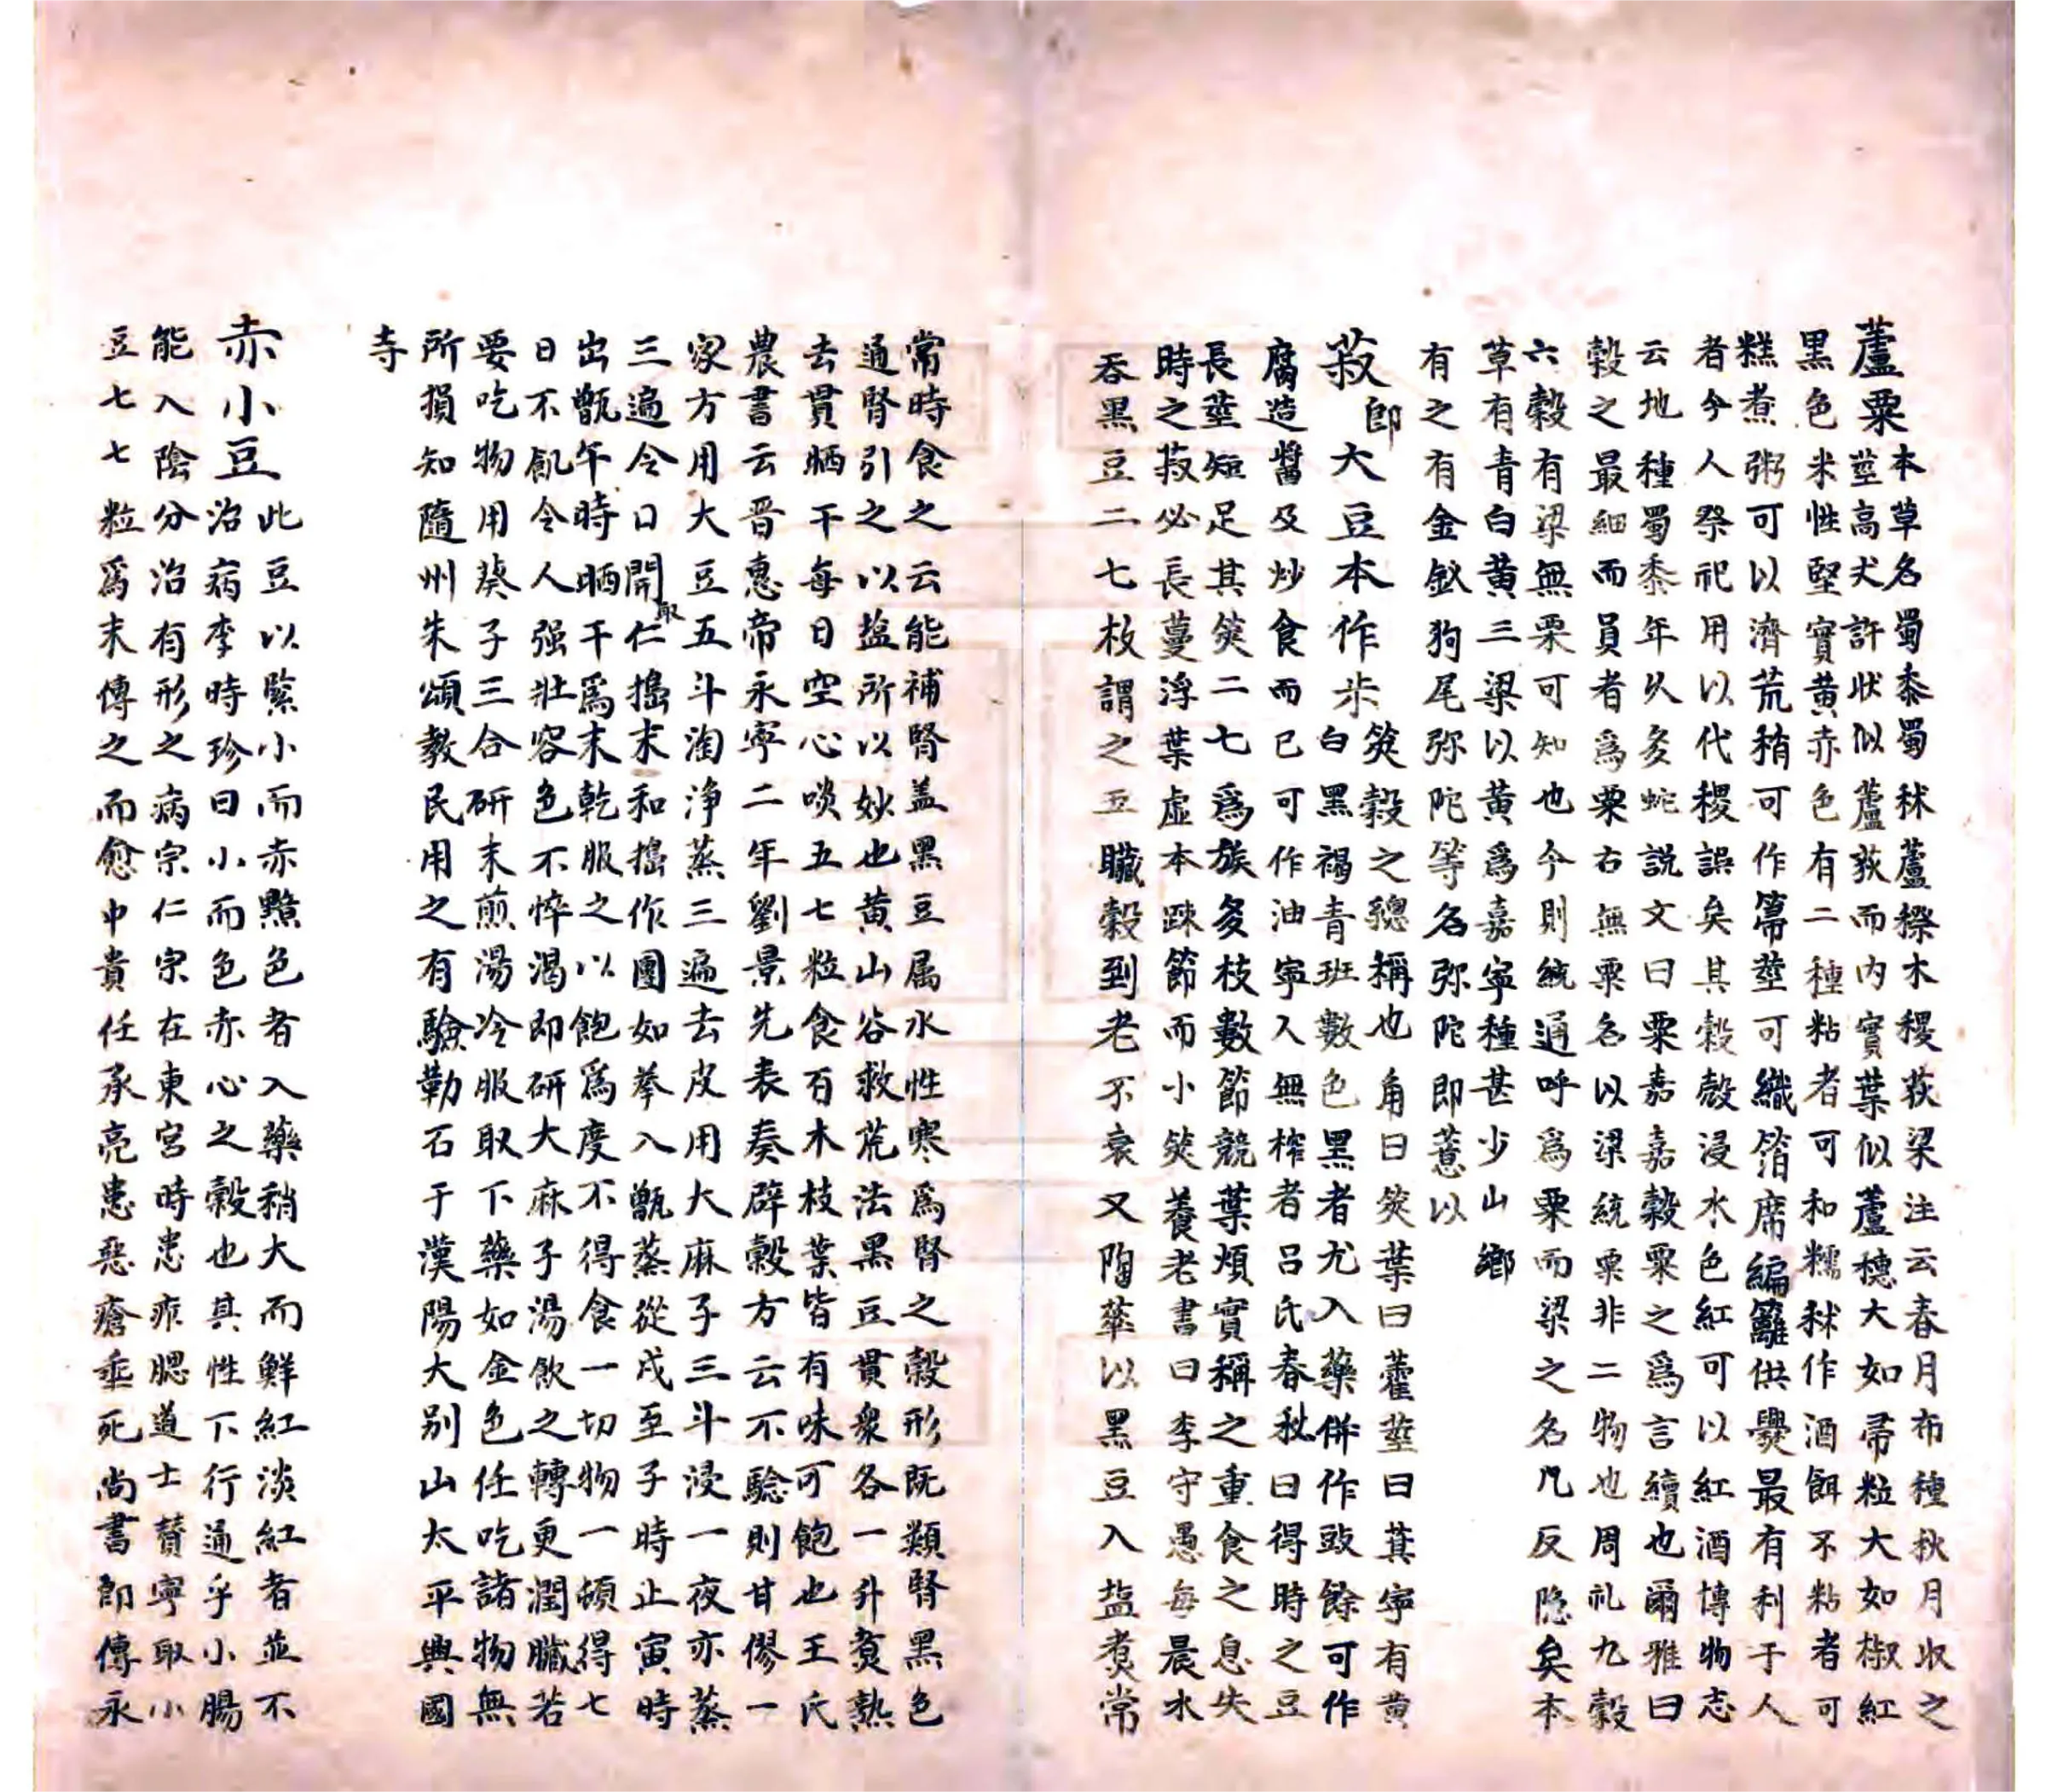 蘆粟本草名蜀黍蜀秫蘆穄木稷荻梁注云春月布種秋月收之
莖高丈許狀似蘆荻而內實葉似蘆穗大如帚粒大如椒紅
黑色米性堅實黃赤色有二種粘者可和糯秫作酒餌不粘者可
糕煮粥可以濟荒稍可作箒莖可織箔席編籬供爨最有利于人
者今人祭祀用以代稷誤矣其穀殼浸水色紅可以紅酒博物志
云地種蜀黍年久多蛇說文曰粟嘉嘉穀粟之為言續也爾雅曰
穀之最細而員者為粟古無粟名以梁統粟非二物也周礼九穀
六穀有梁無栗可知也今則統通呼為粟而梁之名凡反隐矣本
草有青白黃三梁以黃為嘉寧種甚少山鄉
有之有金釵狗尾弥陀等名弥陀即薏以
菽即大豆本作尗莢穀之緫稱也角曰莢葉曰藿莖曰萁寧有黄
白黑褐青班數色黑者尤入藥併作豉餘可作
腐造醬及炒食而已可作油寧入無榨者吕氏春秋曰得時之豆
長莖短足其莢二七為族多枝數節競葉煩實稱之重食之息失
時之菽必長蔓浮葉虛本踈節而小莢養老書曰李守愚每晨水
吞黑豆二七枚謂之五臟穀到老不衰又陶華以黑豆入盐煮常
常時食之云能補腎盖黑豆属水性寒為腎之穀形既類腎黑色
通腎引之以盐所以妙也黄山谷救荒法黑豆貫衆各一升煑熟
去貫晒干每日空心啖五七粒食百木枝葉皆有味可飽也王氏
農書云晋惠帝永寧二年劉景先表奏辟穀方云不驗則甘僇一
家方用大豆五斗淘净蒸三遍去皮用大麻子三斗浸一夜亦蒸
三遍令口開取仁搗末和搗作團如拳入甑蒸從戌至子時止寅時
出甑午時晒干為末乾服之以飽為度不得食一切物一頓得七
日不飢令人强壯容色不悴渴即研大麻子湯飲之轉更潤臟若
要吃物用葵子三合研末煎湯冷服取下藥如金色任吃諸物無
所損知隨州朱頌教民用之有驗勒石于漢陽大别山太平興國
寺
赤小豆此豆以緊小而赤黯色者入藥稍大而鮮紅淡紅者並不
治病李時珍曰小而色赤心之穀也其性下行通乎小腸
能入陰分治有形之病宗仁宗在東宮時患痄腮道士贊寧取小
豆七七粒為末傅之而愈中貴任承亮患惡瘡垂死尚書郎傅永